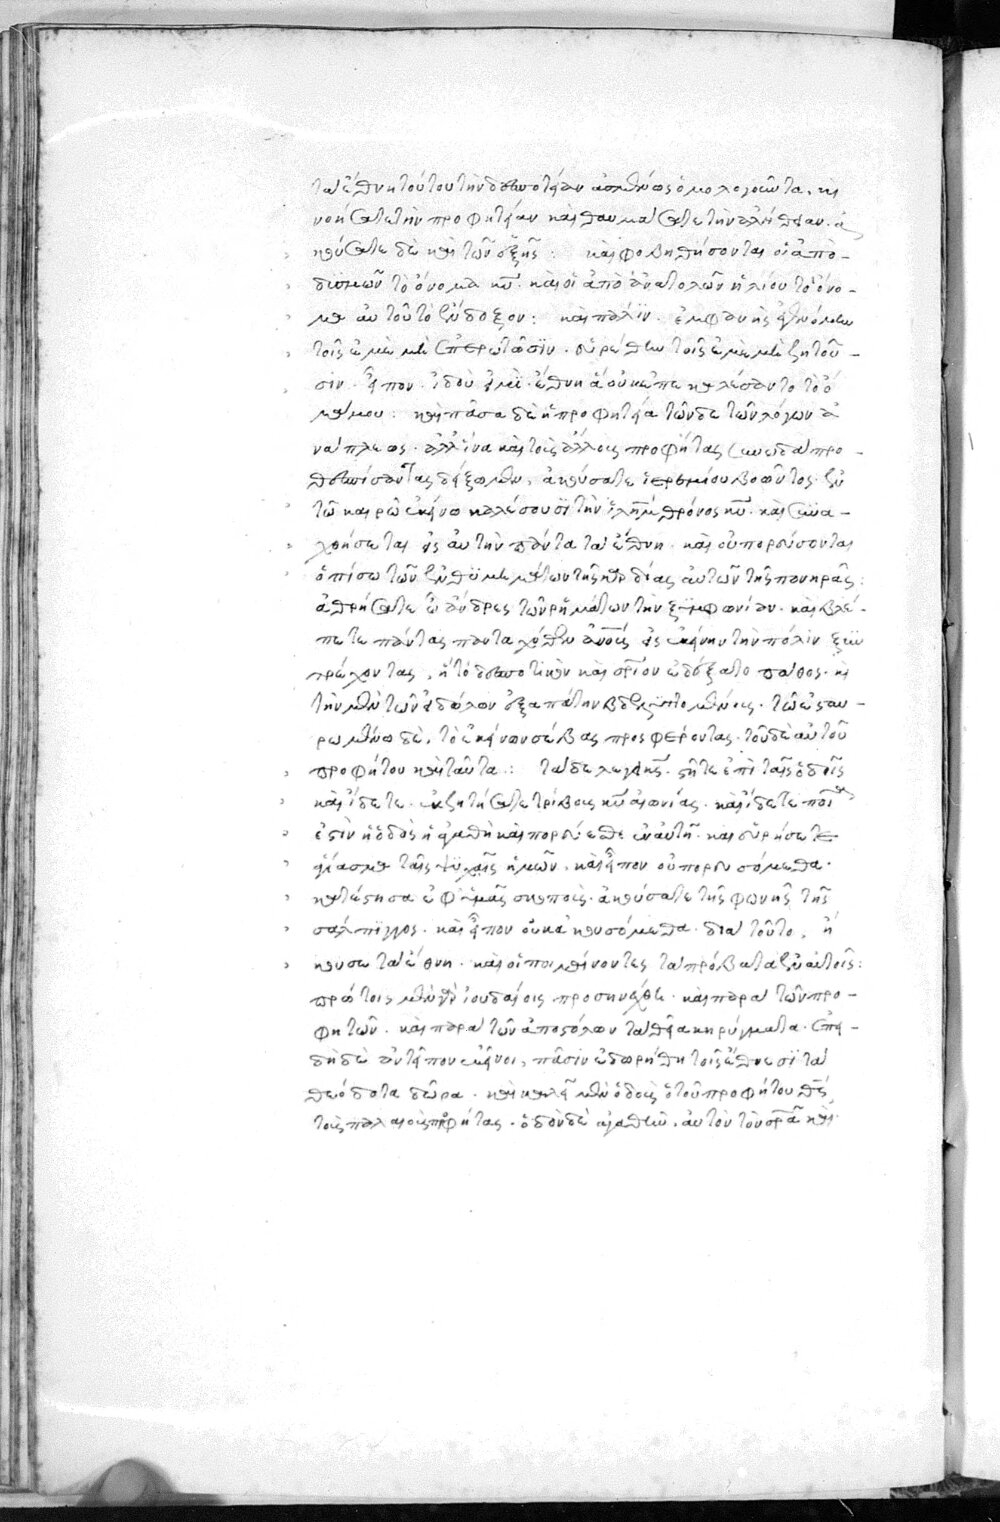 τὰ ἔθνη τούτου τὴν δεσποτείαν ἀσμένως ὁμολογοῦντα, καὶ
νοήσατε τὴν προφητείαν καὶ θαυμάσατε τὴν ἀλήθειαν. ἀ
κούσατε δὲ καὶ τῶν ἑξῆς: καὶ φοβηθήσονται οἱ ἀπὸ
δυσμῶν τὸ ὄνομα κυ̅. καὶ οἱ ἀπὸ ἀνατολῶν ἡλίου τὸ ὄνο-
μα αὐτοῦ τὸ ἔνδοξον: καὶ πάλιν. ἐμφανὴς ἐγενόμην
τοῖς ἐμὲ μὴ ἐπερωτῶσιν. εὑρέθην τοῖς ἐμὲ μὴ ζητοῦ-
σιν. εἶπον. ἰδού εἰμι. ἔθνη ἃ οὐκ ἐπεκαλέσαντο τὸ ὄ
μά μου: καὶ πᾶσα δὲ ἡ προφητεία τῶνδε τῶν λόγων ἀ
νάπλεως. ἀλλ' ἵνα καὶ τοὺς ἄλλους προφήτας συνῳδὰ προ-
θεσπίσαντας δείξωμεν, ἀκούσατε ἱερεμίου βοῶντος. ἐν
τῷ καιρῷ ἐκείνῳ καλέσουσι τὴν ἱλημ̅ θρόνος κυ̅. καὶ συνα-
χθήσεται εἰς αὐτὴν πάντα τὰ ἔθνη. καὶ οὐ πορεύσονται
ὀπίσω τῶν ἐνθυμημάτων τῆς καρδίας αὐτῶν τῆς πονηρᾶς:
ἀθρήσατε ὦ ἄνδρες τῶν ῥημάτων τὴν ξυμφωνίαν. καὶ βλέ-
πετε πάντας πανταχόθεν ἀνο̅υς εἰς ἐκείνην τὴν πόλιν ξυν
τρέχοντας, ἣ τὸ δεσποτικὸν καὶ σρ̅ιον ἐδέξατο πάθος. καὶ
τὴν μὲν τῶν εἰδώλων ἐξαπάτην βδελυττομένους. τῷ ἐσταυ-
ρωμένῳ δὲ, τὸ ἐκείνων σέβας προσφέροντας. τοῦ δὲ αὐτοῦ
προφήτου καὶ ταῦτα: τάδε λέγει κς̅. στῆτε ἐπὶ ταῖς ὁδοῖς
καὶ ἴδετε. ἐκζητήσατε τρίβους κυ̅ αἰωνίας. καὶ ἴδετε ποία
ἐστὶν ἡ ὁδὸς ἡ ἀγαθὴ καὶ πορεύεσθε ἐν αὐτῇ. καὶ εὑρήσετε
ἁγίασμα ταῖς ψυχαῖς ἡμῶν. καὶ εἶπον οὐ πορευσόμεθα.
κατέστησα ἐφ' ὑμᾶς σκοπούς. ἀκούσατε τῆς φωνῆς τῆς
σάλπιγγος. καὶ εἶπον οὐκ ἀκουσόμεθα. διὰ τοῦτο, ἤ
κουσε τὰ ἔθνη. καὶ οἱ ποιμαίνοντες τὰ πρόβατα ἐν αὐτοῖς:
πρώτοις μὲν γὰρ ἰουδαίοις προσηνέχθη. καὶ παρὰ τῶν προ-
φητῶν. καὶ παρὰ τῶν ἀποστόλων τὰ θεῖα κηρύγματα. ἐπει-
δὴ δὲ ἀντεῖπον ἐκεῖνοι, πᾶσιν ἐδωρήθη τοῖς ἔθνεσι τὰ
θεόδοτα δῶρα. καὶ καλεῖ μὲν ὁδοὺς ὁ τοῦ προφήτου θς̅,
τοὺς παλαιοὺς προφήτας. ὁδὸν δὲ ἀγαθὴν. αὐτὸν τὸν σρ̅α καὶ